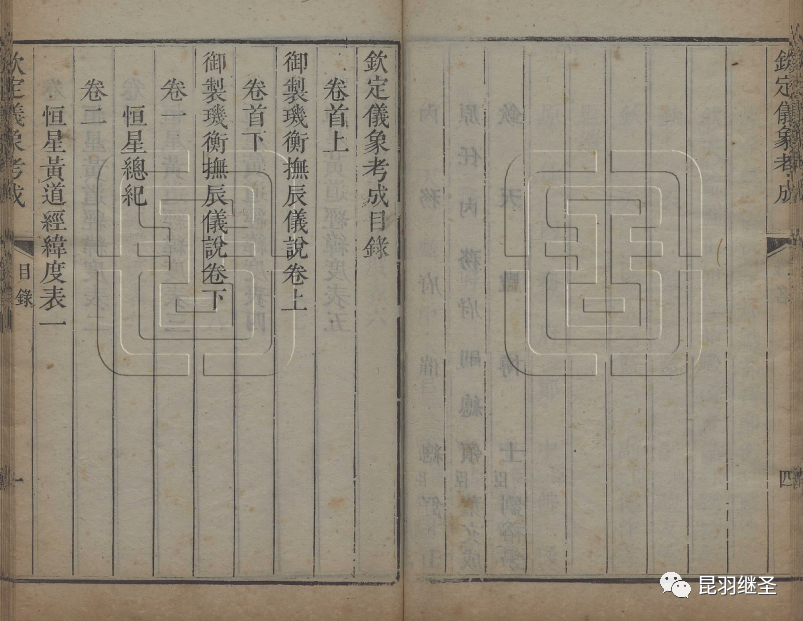 欽定儀象考成
四
欽定儀象考成目錄
卷首上
御製璣衡撫辰儀說卷上
卷首下
御製璣衡撫辰儀說卷下
卷一
恒星總紀
卷二
恒星黃道經緯度表一
欽定儀象考成
目錄
一
昆羽继圣